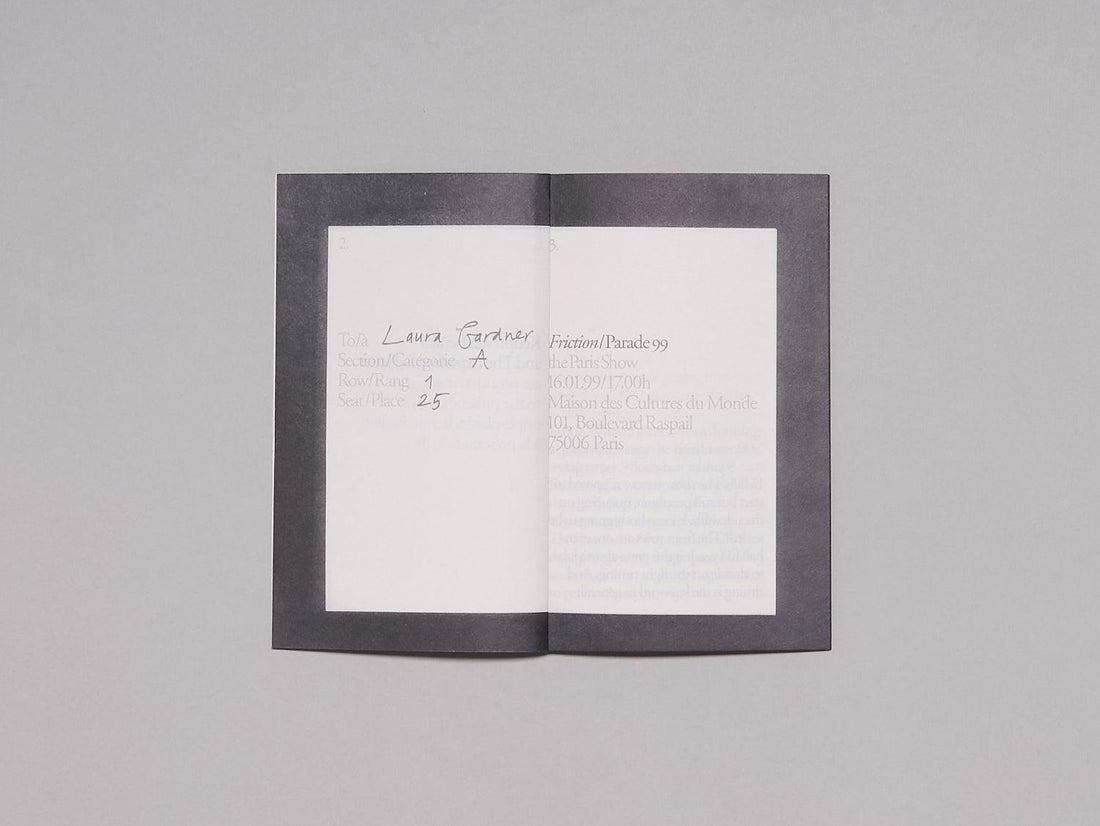 2.
To/à Laura Gardner
Section/Catégorie A
Row/Rang 1
Seat/Place 25
3.
Friction/Parade 99
the Paris Show
16.01.99/17.00h
Maison des Cultures du Monde
101, Boulevard Raspail
75006 Paris